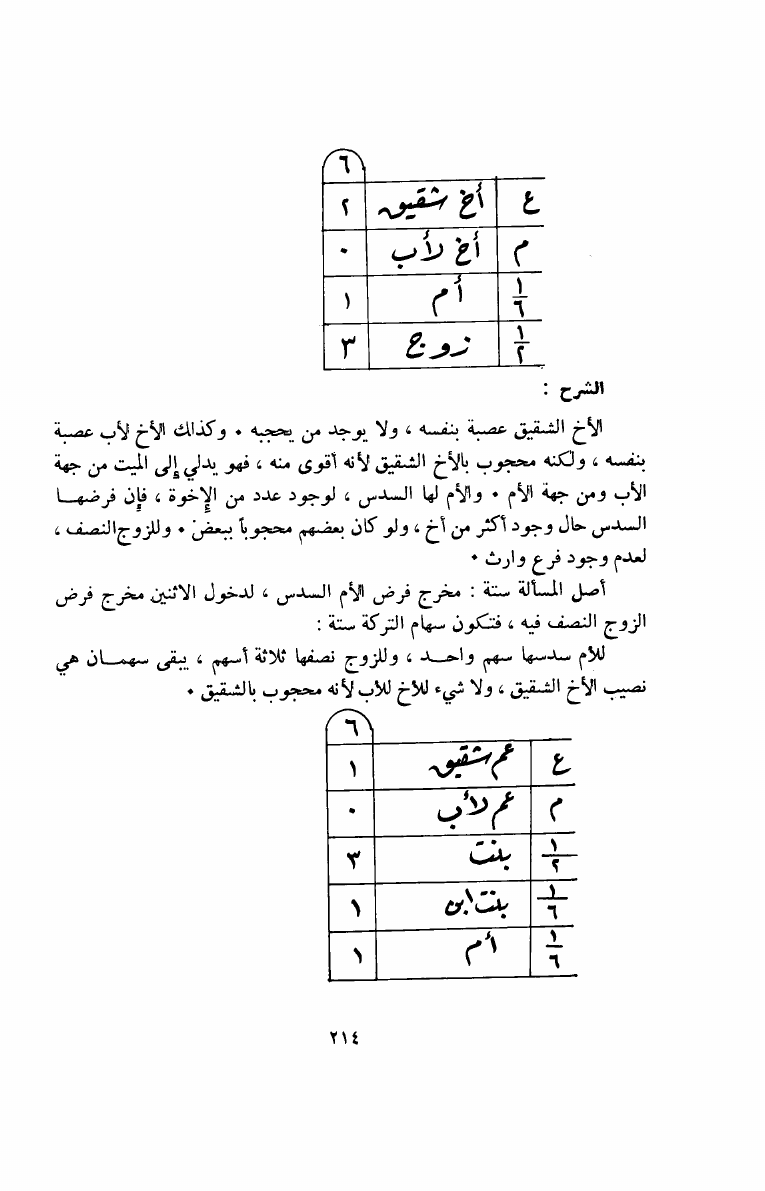 ٦
ع أخ شقيق ٢
م أخ لأب ٠
١/٦ أم ١
١/٢ زوج ٣
الشرح :
الأخ الشقيق عصبة بنفسه ، ولا يوجد من يحجبه ٠ وكذلك الأخ لأب عصبة
بنفسه ، ولكنه محجوب بالأخ الشقيق لأنه أقوى منه ، فهو يدلي إلى الميت من جهة
الأب ومن جهة الأم ٠ والأم لها السدس ، لوجود عدد من الإخوة ، فإن فرضها
السدس حال وجود أكثر من أخ ، ولو كان بعضهم محجوباً ببعض ٠ وللزوج النصف ،
لعدم وجود فرع وارث ٠
أصل المسألة ستة : مخرج فرض الأم السدس ، لدخول الاثنين مخرج فرض
الزوج النصف فيه ، فتكون سهام التركة ستة :
للأم سدسها سهم واحد ، وللزوج نصفها ثلاثة أسهم ، يبقى سهمان هي
نصيب الأخ الشقيق ، ولا شيء للأخ للأب لأنه محجوب بالشقيق ٠
٦
ع عم شقيق ١
م عم لأب ٠
١/٢ بنت ٣
١/٦ بنت ابن ١
١/٦ أم ١
٢١٤